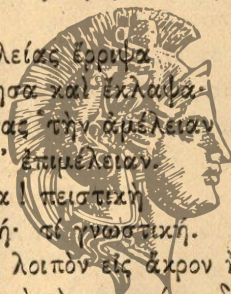 λείας ἔρριψα
ησα καὶ ἔκλαψα·
ας τὴν ἀμέλειαν
ἐπιμέλειαν.
α ! πειστικὴ
ή· τί γνωστική.
λοιπὸν εἰς ἄκρον